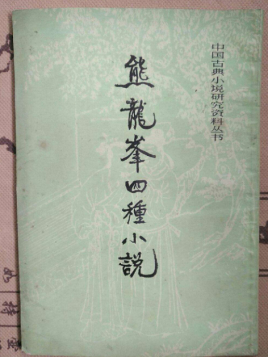 中国古典小说研究资料丛书
熊龍峯四種小説